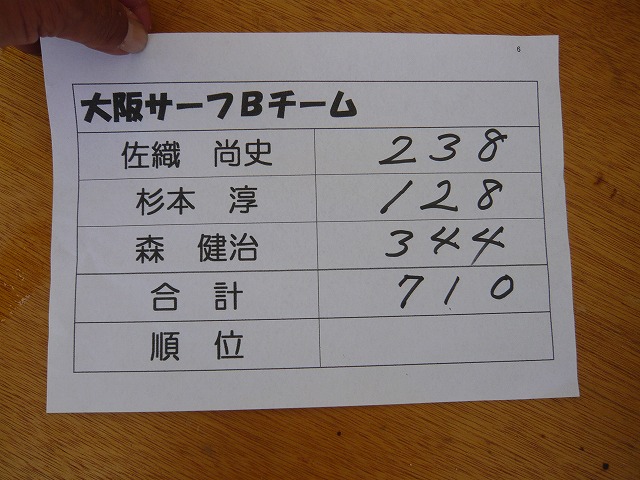 6
大阪サーフBチーム
佐織 尚史 238
杉本 淳 128
森 健治 344
合 計 710
順 位